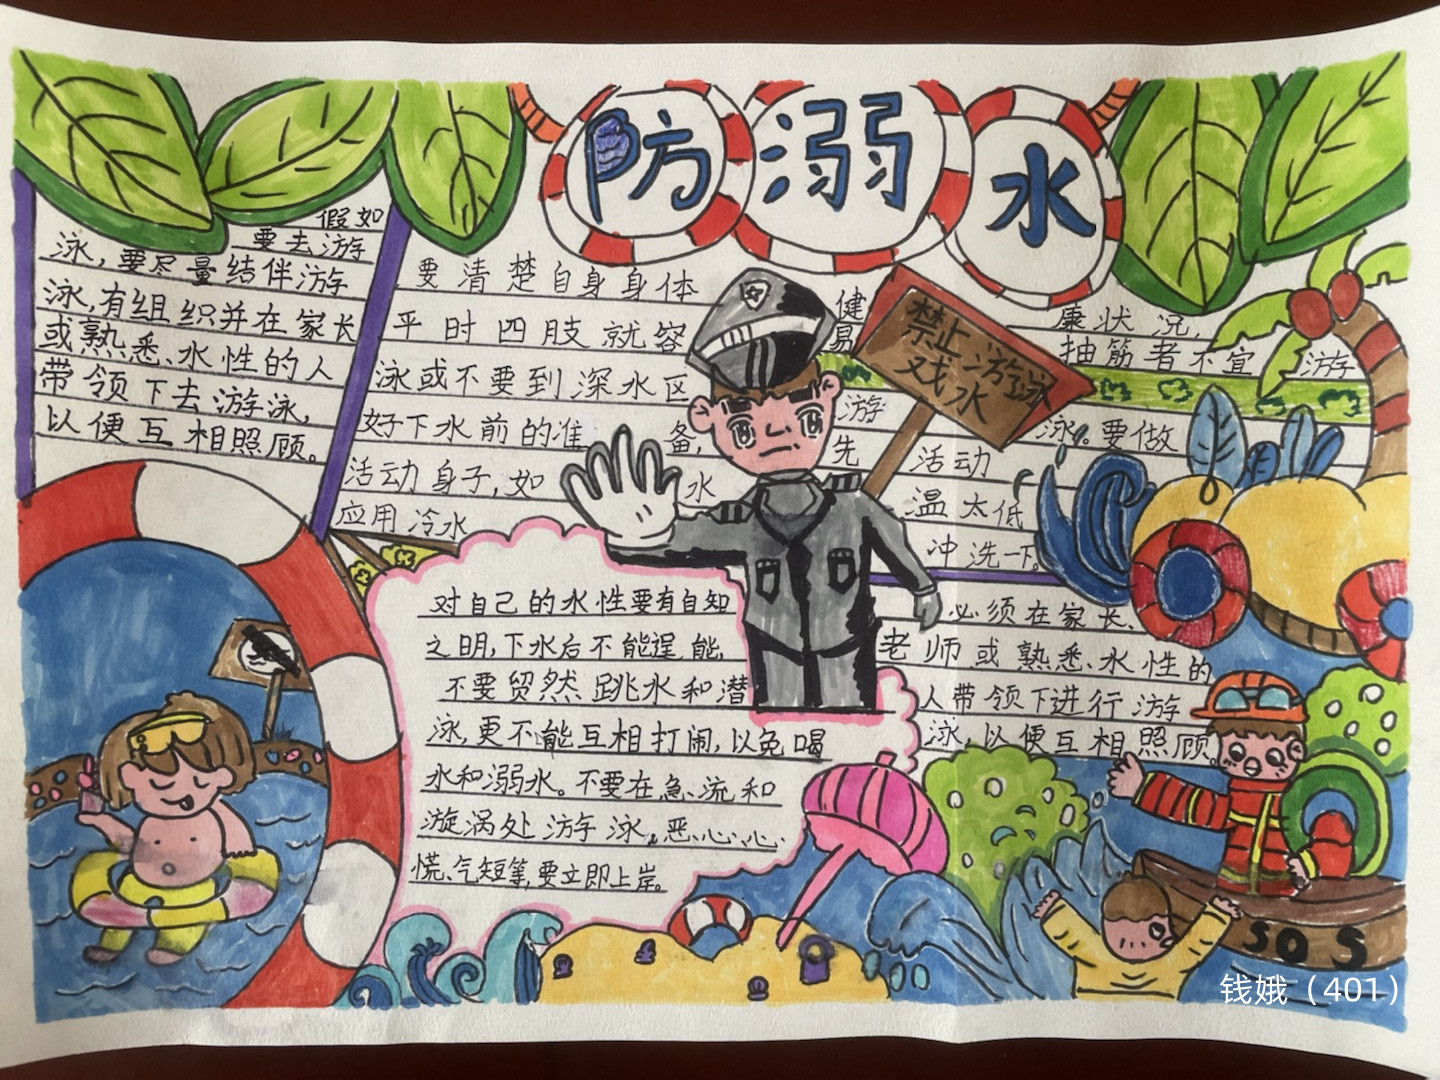 防溺水
假如
要去游
泳，要尽量结伴游
泳，有组织并在家长
或熟悉、水性的人
带领下去游泳，
以便互相照顾。
要清楚自身身体健康状况，
平时四肢就容易抽筋者不宜游
泳或不要到深水区游泳。要做
好下水前的准备，先活动
活动身子，如水温太低
应用冷水冲洗一下。
禁止游泳
戏水
对自己的水性要有自知
之明，下水后不能逞能，
不要贸然跳水和潜
泳，更不能互相打闹，以免喝
水和溺水。不要在急流和
漩涡处游泳。恶心、心
慌、气短等，要立即上岸。
必须在家长、
老师或熟悉、水性的
人带领下进行游
泳，以便互相照顾。
SOS
钱娥（401）